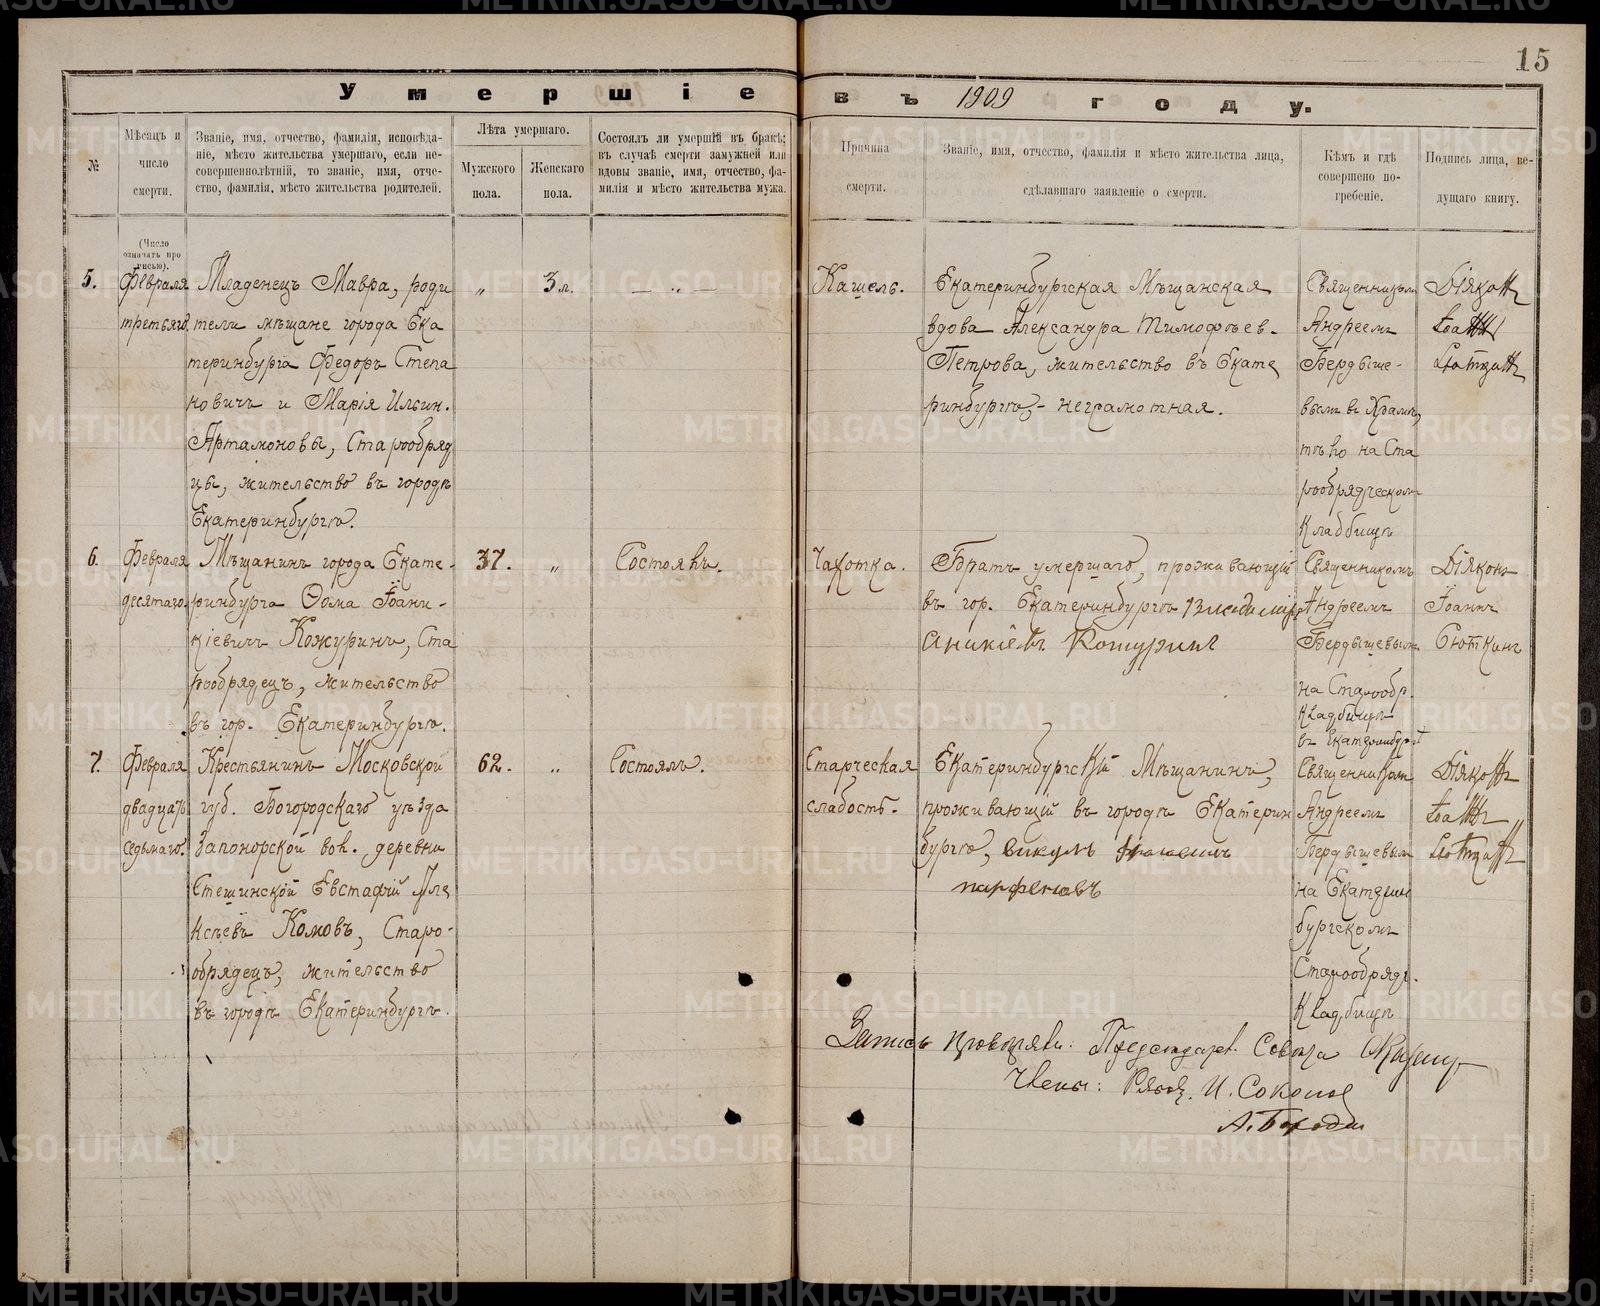 15
Умершіе въ 1909 году.
№
Мѣсяцъ и
число
смерти.
Званіе, имя, отчество, фамилія, исповѣда-
ніе, мѣсто жительства умершаго, если не-
совершеннолѣтній, то званіе, имя, отче-
ство, фамилія, мѣсто жительства родителей.
Лѣта умершаго.
Мужского
пола.
Женскаго
пола.
Состоялъ ли умершій въ бракѣ;
въ случаѣ смерти замужней или
вдовы званіе, имя, отчество, фа-
милія и мѣсто жительства мужа.
Причина
смерти.
Званіе, имя, отчество, фамилія и мѣсто жительства лица,
сдѣлавшаго заявленіе о смерти.
Кѣмъ и гдѣ
совершено по-
гребеніе.
Подпись лица, ве-
дущаго книгу.
(Число
означать про
писью).
5.
Февраля
третьяго.
Младенецъ Мавра, роди
тели мѣщане города Ека
теринбурга Федоръ Степа
новичъ и Марія Ильин.
Артамоновы, Старообряд
цы, жительство въ городѣ
Екатеринбургѣ.
„
3 л.
— „ —
Кашель.
Екатеринбургская Мѣщанская
вдова Александра Тимофѣев.
Петрова, жительство въ Екате
ринбургѣ, - неграмотная.
Священникъм
Андреемъ
Бердыше-
вымъ въ Храмѣ,
тѣло на Ста
рообрядческомъ
Кладбищѣ
Діяконъ
6.
Февраля
десятаго.
Мѣщанинъ города Екате-
ринбурга Ѳома Іоани-
кіевичъ Кожуринъ, Ста
рообрядецъ, жительство
въ гор. Екатеринбургѣ.
37.
„
Состоялъ.
Чахотка.
Братъ умершаго, проживающій
въ гор. Екатеринбургѣ
Аникіевъ Кошуринъ
Священникомъ
Андреемъ
Бердышевымъ
на Старообр.
Кладбищѣ
въ Екатеринбургѣ
Діяконъ
Іоаннъ
Сюткинъ
7.
Февраля
двадцать
седьмаго.
Крестьянинъ Московской
губ. Богородскаго уѣзда
Запонорской вол. деревни
Стешинской Евстафій Але
ксѣевъ Комовъ, Старо-
обрядецъ, жительство
въ городѣ Екатеринбургѣ.
62.
„
Состоялъ.
Старческая
слабость.
Екатеринбургскій Мѣщанинъ,
проживающій въ городѣ Екатерин
бургѣ, викулъ
парфеновъ
Священникомъ
Андреемъ
Бердышевым
на Екатерин
бургскомъ
Старообрядч.
Кладбищѣ
Діяконъ
Запись провѣряли: Председат. Совѣта
Члены: И. Соколов
А. Бород